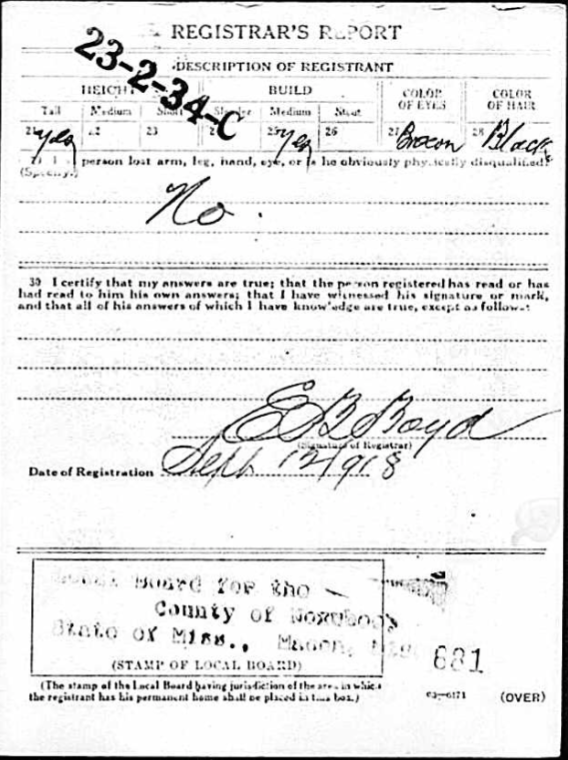 REGISTRAR'S REPORT
23-2-34-C
DESCRIPTION OF REGISTRANT
HEIGHT BUILD COLOR OF EYES COLOR OF HAIR
Tall Medium Short Slender Medium Stout
21 Yes 22 23 24 25 Yes 26 27 Brown 28 Black
29 person lost arm, leg, hand, eye, or is he obviously physically disqualified?
(Specify.)
No.
30 I certify that my answers are true; that the person registered has read or has
had read to him his own answers; that I have witnessed his signature or mark,
and that all of his answers of which I have knowledge are true, except as follows:
E B Boyd
(Signature of Registrar)
Date of Registration Sept 12 1918
Local Board for the
County of Noxubee
State of Miss., Macon, Miss
(STAMP OF LOCAL BOARD)
681
(The stamp of the Local Board having jurisdiction of the area in which
the registrant has his permanent home shall be placed in this box.)
03—6171 (OVER)